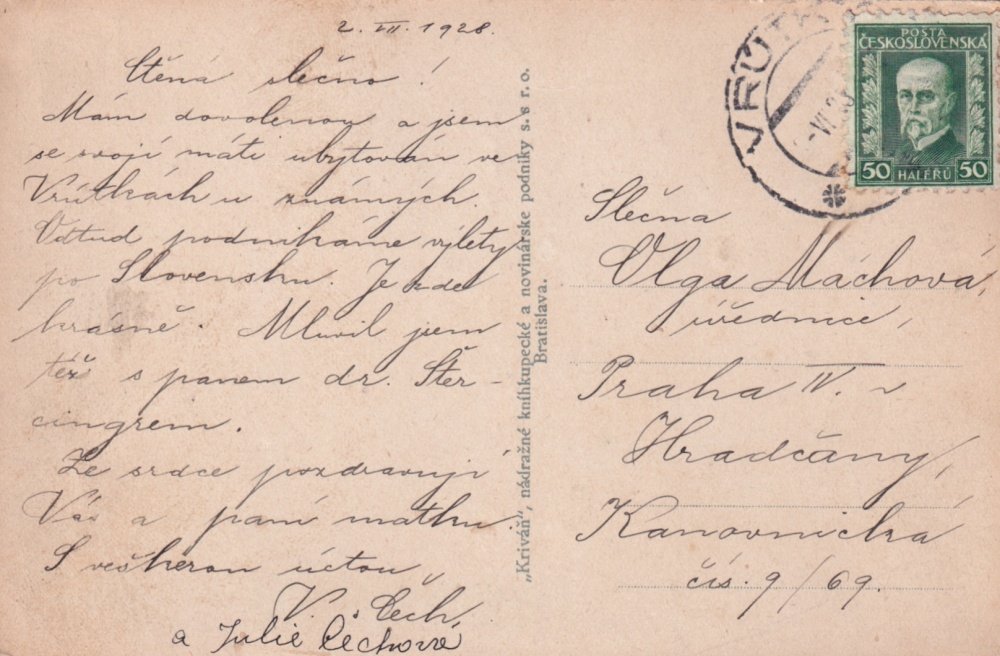 2. VII. 1928.
Ctěná slečno!
Mám dovolenou a jsem
se svojí máti ubytován ve
Vrútkách u známých.
Odtud podnikáme výlety
po Slovensku. Je zde
krásně. Mluvil jsem
též s panem dr. Šter-
cingrem.
Ze srdce pozdravují
Vás a paní matku.
S veškerou úctou
V. Čech.
a Julie Čechová
„Kriváň", nádražné kníhkupecké a novinárske podniky s. s r. o.
Bratislava.
VRÚTK
-VI 28
POSTA
ČESKOSLOVENSKÁ
50 HALÉŘŮ 50
Slečna
Olga Máchová,
úřednice,
Praha IV. v
Hradčany,
Kanovnická
čís. 9/69.